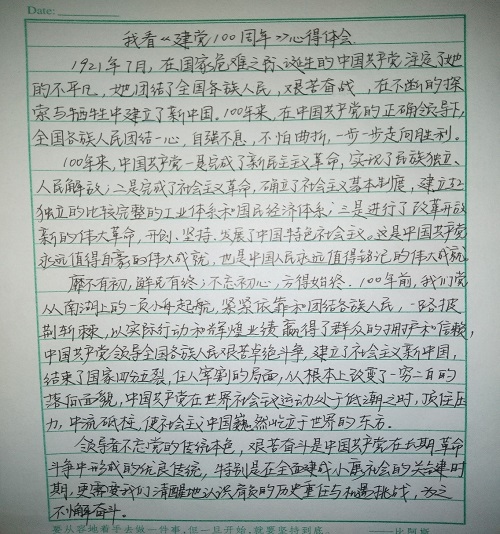 Date:
我看《建党100周年》心得体会
1921年7月，在国家危难之际诞生的中国共产党注定了她
的不平凡。她团结了全国各族人民，艰苦奋战，在不断的探
索与牺牲中建立了新中国。100年来，在中国共产党的正确领导下，
全国各族人民团结一心，自强不息，不怕曲折，一步一步走向胜利。
100年来，中国共产党一是完成了新民主主义革命，实现了民族独立、
人民解放；二是完成了社会主义革命，确立了社会主义基本制度，建立起
独立的比较完整的工业体系和国民经济体系；三是进行了改革开放
新的伟大革命，开创、坚持、发展了中国特色社会主义。这是中国共产党
永远值得自豪的伟大成就，也是中国人民永远值得铭记的伟大成就
靡不有初，鲜克有终；不忘初心，方得始终。100年前，我们党
从南湖上的一只小舟起航，紧紧依靠和团结各族人民，一路披
荆斩棘，以实际行动和辉煌业绩赢得了群众的拥护和信赖，
中国共产党领导全国各族人民艰苦卓绝斗争，建立了社会主义新中国，
结束了国家四分五裂，任人宰割的局面，从根本上改变了一穷二白的
落后面貌，中国共产党在世界社会主义运动处于低潮之时，顶住压
力，中流砥柱，使社会主义中国巍然屹立于世界的东方。
领导者不忘党的传统本色，艰苦奋斗是中国共产党在长期革命
斗争中形成的优良传统，特别是在全面建成小康社会的关键时
期，更需要我们清醒地认识肩负的历史重任与机遇挑战，为之
不懈奋斗。
要从容地着手去做一件事，但一旦开始，就要坚持到底。